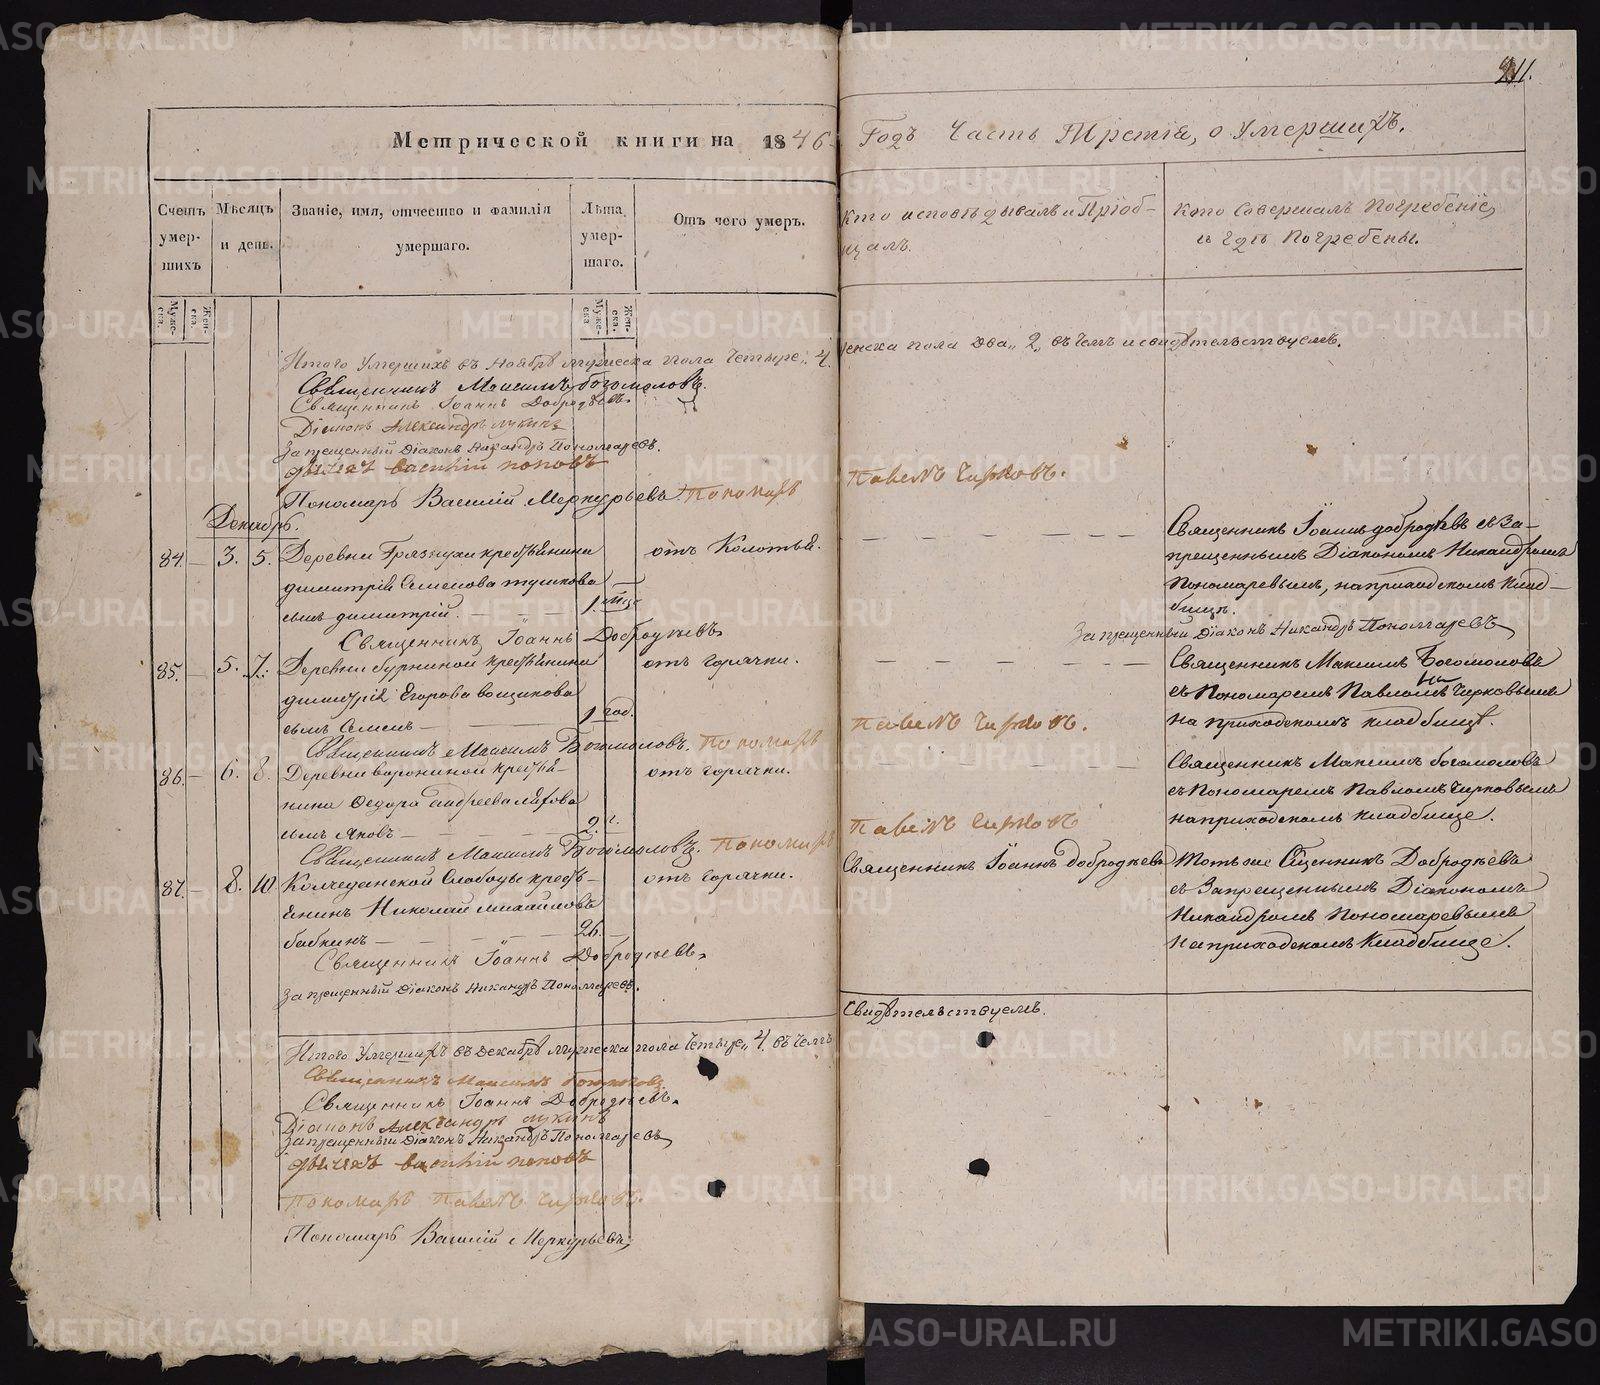 211.
Метрической книги на 1846
Годъ Часть Третія, о Умершихъ.
Счетъ умер-шихъ
Мѣсяцъ и день.
Званіе, имя, отчество и фамилія умершаго.
Лѣта умер-шаго.
Отъ чего умеръ.
Кто исповѣдывалъ и Пріоб-
щалъ.
Кто Совершалъ Погребеніе,
и гдѣ Погребены.
Муже-ска.
Жен-ска.
Муже-ска
Жен-ска.
Итого Умершихъ въ Ноябрѣ мужеска пола Четыре,, 4.
женска пола два,, 2,, въ чемъ и свидѣтельствуемъ.
Священникъ Максимъ Богомоловъ.
Священникъ Іоаннъ Добродѣевъ.
Діаконъ Александръ Лукинъ
Запрещенный Діаконъ Никандръ Пономаревъ.
Дьячекъ Василій Поповъ
Пономарь Василій Меркурьевъ. Пономарь
Павелъ Чирковъ.
Декабрь.
84. — 3. 5. Деревни Грязнухи крестьянина
димитрія Семенова тушкова
сынъ димитрій. — — —
1. мѣс.
отъ Колотья.
— — — — — —
Священникъ Іоаннъ добродѣевъ съ За-
прещеннымъ Діакономъ Никандромъ
Пономаревымъ, на приходскомъ клад-
бищѣ.
Священникъ Іоаннъ Добродѣевъ
Запрещенный діаконъ Никандръ Пономаревъ
85. — 5. 7. Деревни бурниной крестьянина
димитрія Егорова вощикова
сынъ Семенъ —
1 год.
отъ горячки.
— — — — — —
Священникъ Максимъ Богомоловъ
съ Пономаремъ Павломъ Чирковымъ
на приходскомъ кладбищѣ.
Священникъ Максимъ Богомоловъ. Пономарь
Павелъ Чирковъ.
86. — 6. 8. Деревни ворониной крестья-
нина Ѳедора андреева
сынъ Яковъ —
2. г.
отъ горячки.
— — — — — —
Священникъ Максимъ богомоловъ
съ Пономаремъ Павломъ Чирковымъ
на приходскомъ кладбище.
Священникъ Максимъ Богомоловъ. Пономарь
Павелъ Чирковъ
87. — 8. 10 Колчеданской Слободы кресть-
янинъ Николай михайловъ
бабкинъ —
26.
отъ горячки.
Священникъ Іоаннъ добродѣевъ
Тотъ же Сщенникъ Добродѣевъ
съ Запрещеннымъ Діакономъ
Никандромъ Пономаревымъ
на приходскомъ Кладбище.
Священникъ Іоаннъ Добродѣевъ,
Запрещенный Діаконъ Никандръ Пономаревъ.
Итого Умершихъ въ декабрѣ мужеска пола Четыре,, 4. въ Чемъ
Свидѣтельствуемъ.
Священникъ Максимъ Богомоловъ
Священникъ Іоаннъ Добродѣевъ.
Діаконъ Александръ Лукинъ
Запрещенный Діаконъ Никандръ Пономаревъ,
Дьячекъ Василій Поповъ
Пономарь Павелъ Чирковъ.
Пономарь Василій Меркурьевъ,
METRIKI.GASO-URAL.RU